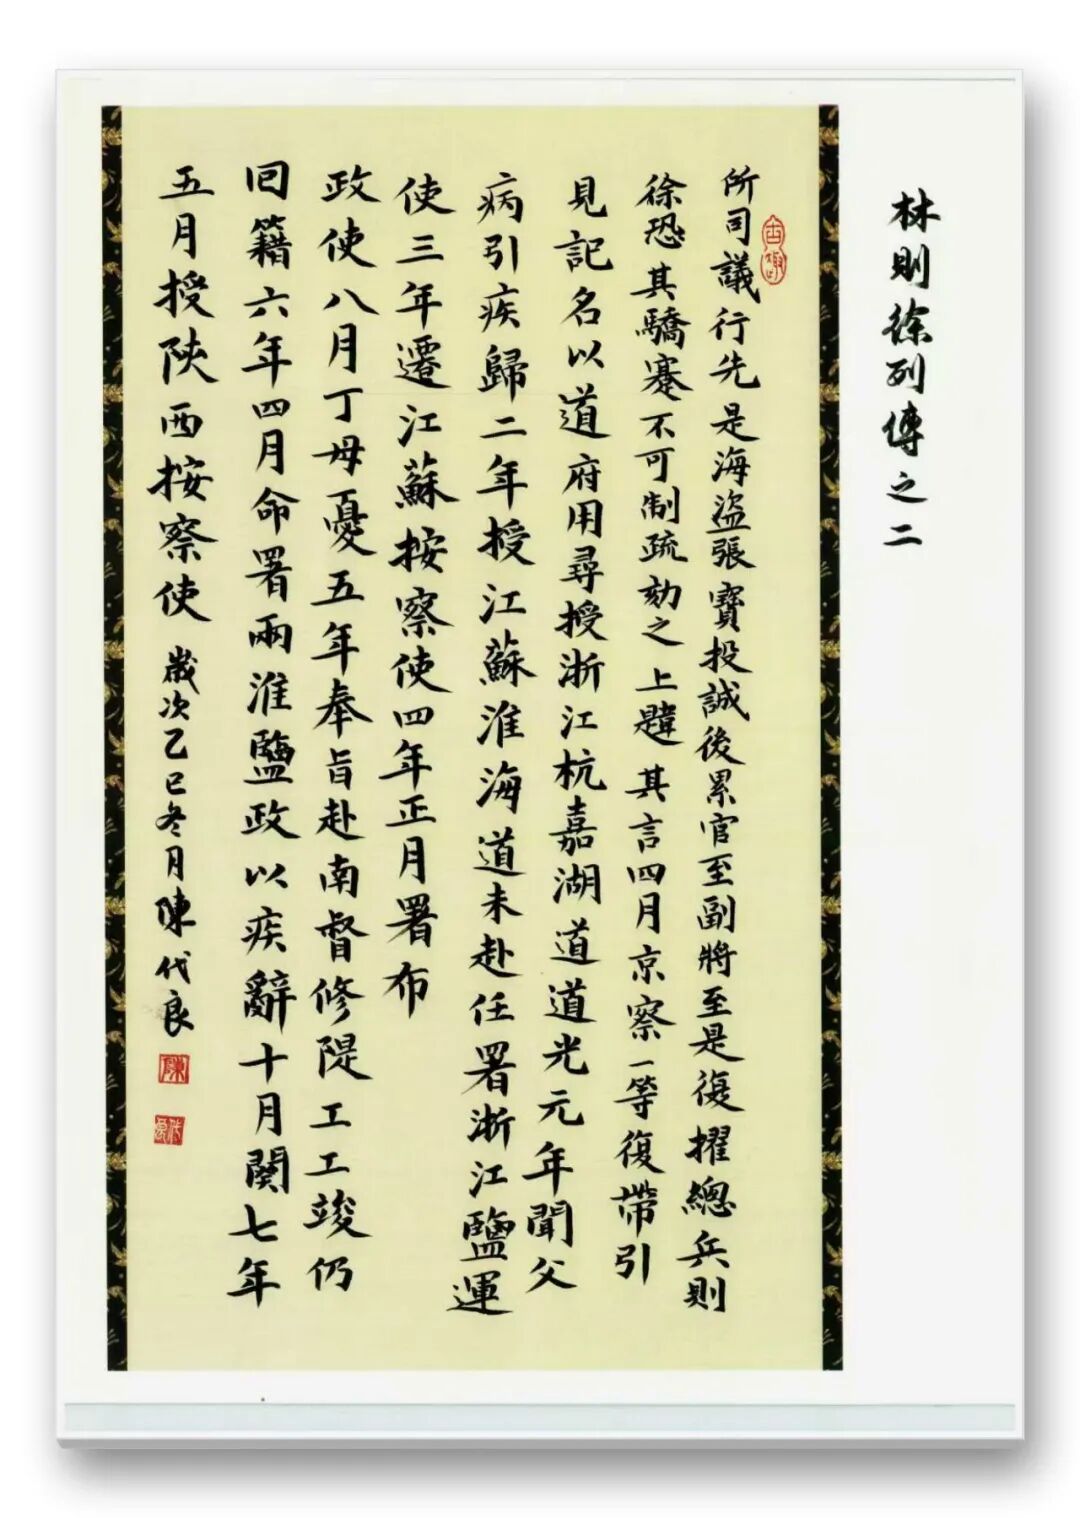 林則徐列傳之二
所司議行先是海盜張寶投誠後累官至副將至是復擢總兵則
徐恐其驕蹇不可制疏劾之上韙其言四月京察一等復帶引
見記名以道府用尋授浙江杭嘉湖道道光元年聞父
病引疾歸二年授江蘇淮海道未赴任署浙江鹽運
使三年遷江蘇按察使四年正月署布
政使八月丁母憂五年奉旨赴南督修隄工工竣仍
回籍六年四月命署兩淮鹽政以疾辭十月闋七年
五月授陝西按察使
歲次乙巳冬月陳代良
陳
代良